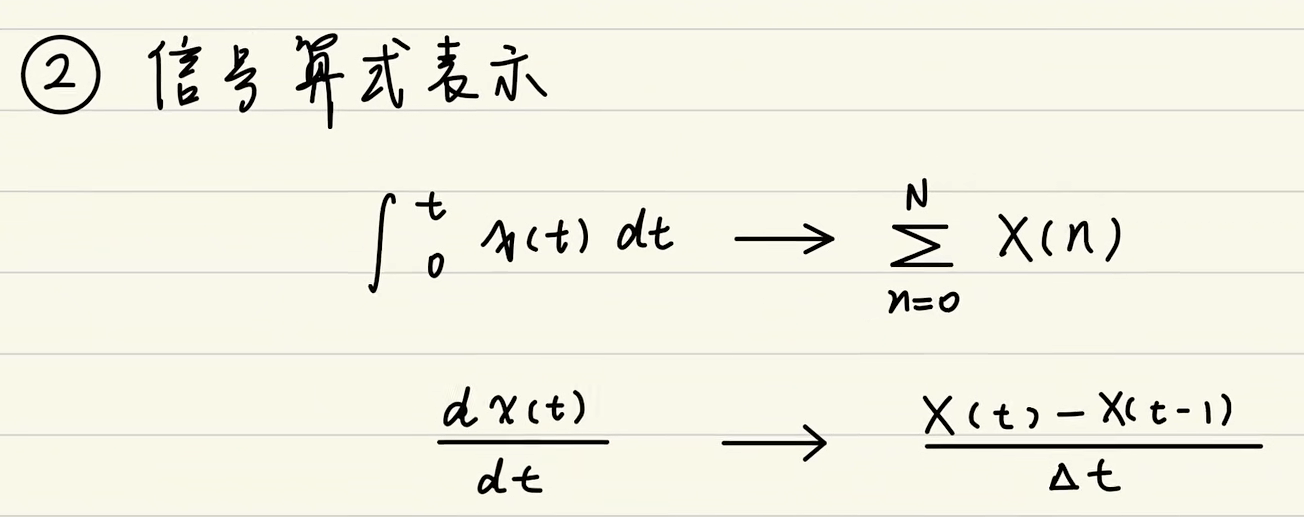 ② 信号算式表示
∫₀ᵗ x(t) dt → ∑ₙ₌₀ᴺ X(n)
dx(t)/dt → (X(t) - X(t-1))/Δt